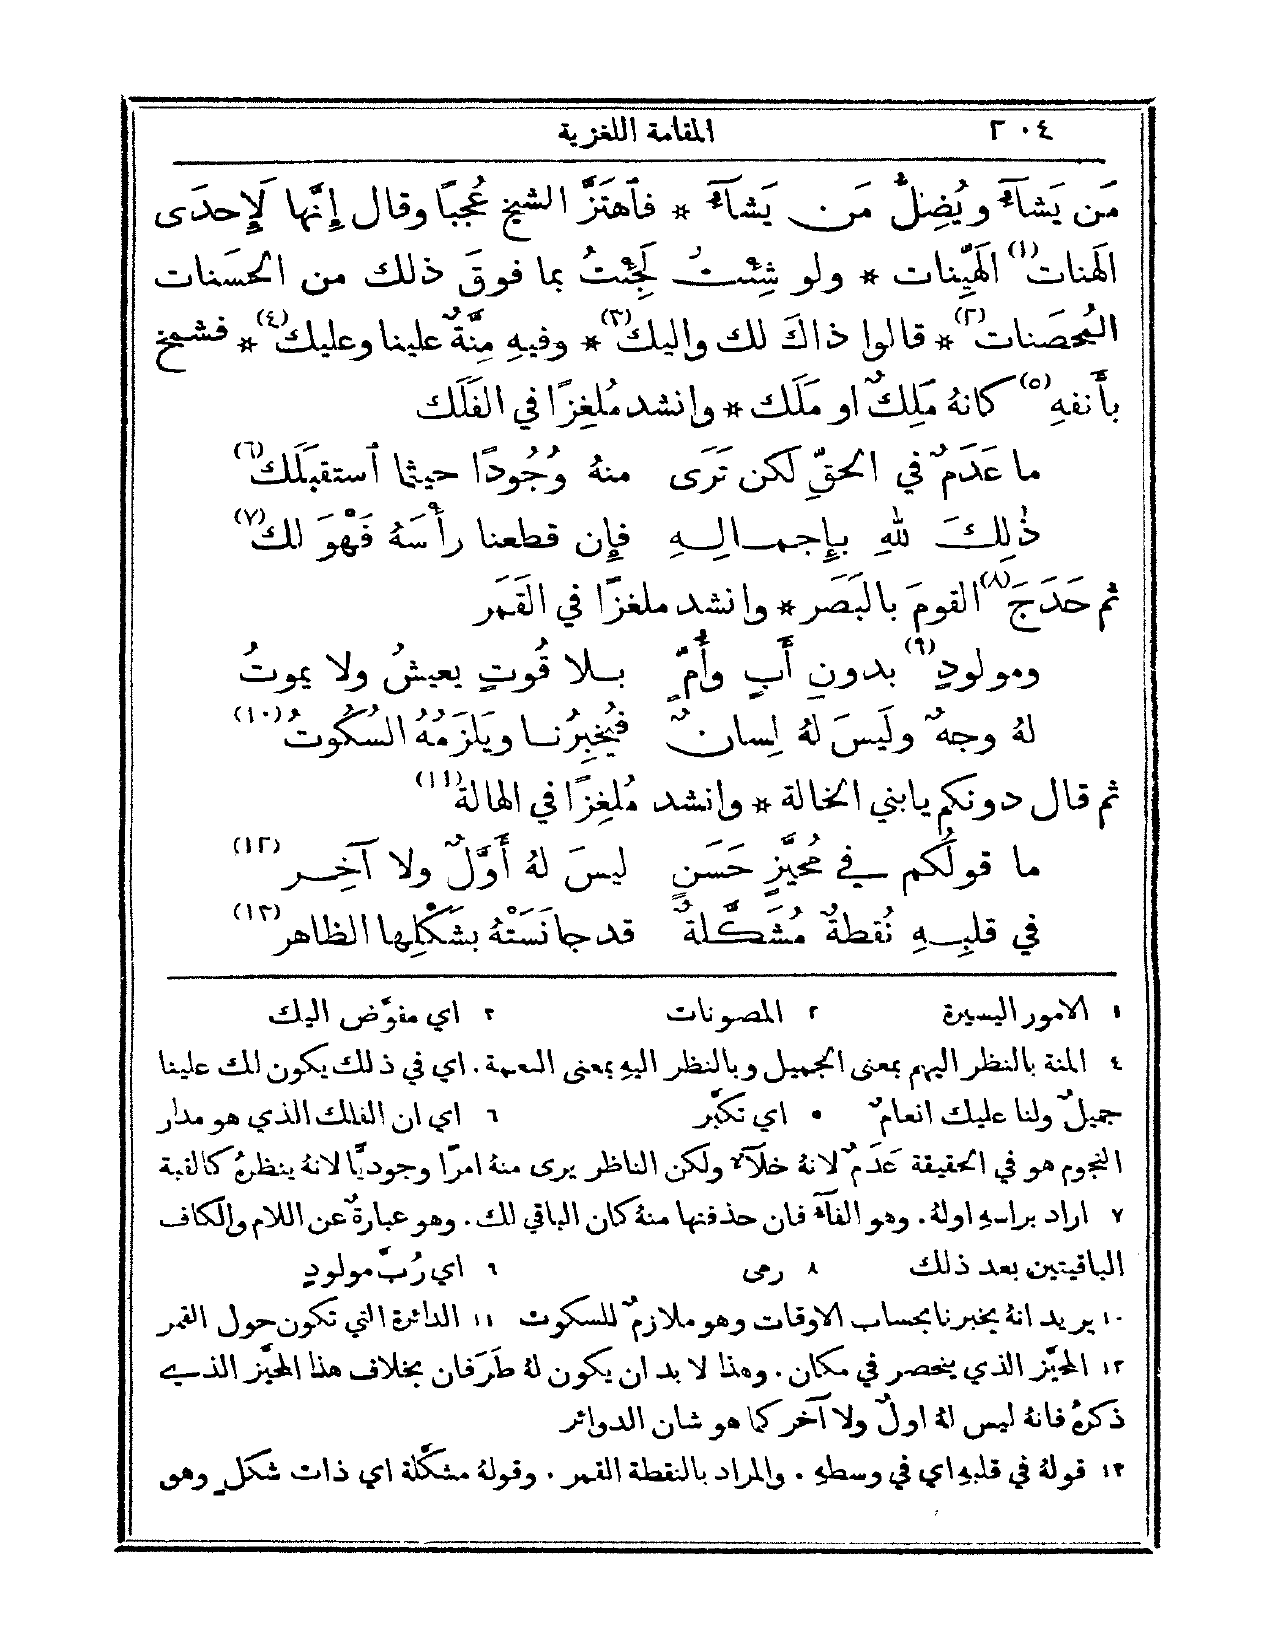 ٢٠٤ المقامة اللغزية
مَن يَشآءُ ويُضِلُّ مَن يَشآءُ * فاَهتَزَّ الشيخ عُجبًا وقال إِنَّها لَإِحدَى
الهَنات(١) الهَيِّنات * ولو شِئْتُ لَجِئْتُ بما فوقَ ذلك من الحَسَنات
المُحصَنات(٢) * قالوا ذاكَ لك واليك(٣) * وفيهِ مِنَّةٌ علينا وعليك(٤) * فشمخ
بأَنفهِ(٥) كانهُ مَلِكٌ او مَلَك * وانشد مُلغِزًا في الفَلَك
ما عَدَمٌ في الحقِّ لكن تَرَى منهُ وُجُودًا حيثما اَستقبَلَك(٦)
ذٰلِكَ للهِ بإِجمالِهِ فإِن قطعنا رأْسَهُ فَهْوَ لك(٧)
ثم حَدَجَ(٨) القومَ بالبَصَر * وانشد ملغزًا في القَمَر
ومولودٍ(٩) بدونِ أَبٍ وأُمٍّ بلا قُوتٍ يعيشُ ولا يموتُ
لهُ وجهٌ ولَيسَ لهُ لِسانٌ فيُخبِرُنا ويَلزَمُهُ السُكُوتُ(١٠)
ثم قال دونكم يا بني الخالة * وانشد مُلغِزًا في الهالة(١١)
ما قولُكم في مُحَيَّزٍ حَسَنٍ ليسَ لهُ أَوَّلٌ ولا آخِر(١٢)
في قلبِهِ نُقطةٌ مُشَكَّلةٌ قد جانَسَتْهُ بشَكْلِها الظاهر(١٣)
١ الامور اليسيرة ٢ المصونات ٣ اي مفوَّض اليك
٤ المنة بالنظر اليهم بمعنى الجميل وبالنظر اليهِ بمعنى النعمة. اي في ذلك يكون لك علينا
جميلٌ ولنا عليك انعامٌ ٥ اي تكبَّر ٦ اي ان الفلك الذي هو مدار
النجوم هو في الحقيقة عَدَمٌ لانهُ خلآءٌ ولكن الناظر يرى منهُ امرًا وجوديًّا لانهُ ينظرهُ كالقبة
٧ اراد براسهِ اولهُ. وهو الفآءُ فان حذفتها منهُ كان الباقي لك. وهو عبارةٌ عن اللام والكاف
الباقيتين بعد ذلك ٨ رمى ٩ اي رُبَّ مولودٍ
١٠ يريد انهُ يخبرنا بحساب الاوقات وهو ملازمٌ للسكوت ١١ الدائرة التي تكون حول القمر
١٢ المحيَّز الذي ينحصر في مكان. وهذا لا بد ان يكون لهُ طَرَفان بخلاف هذا المحيَّز الذي
ذكرهُ فانهُ ليس لهُ اولٌ ولا آخر كما هو شان الدوائر
١٣ قولهُ في قلبهِ اي في وسطهِ. والمراد بالنقطة القمر. وقولهُ مشكَّلة اي ذات شكلٍ وهو